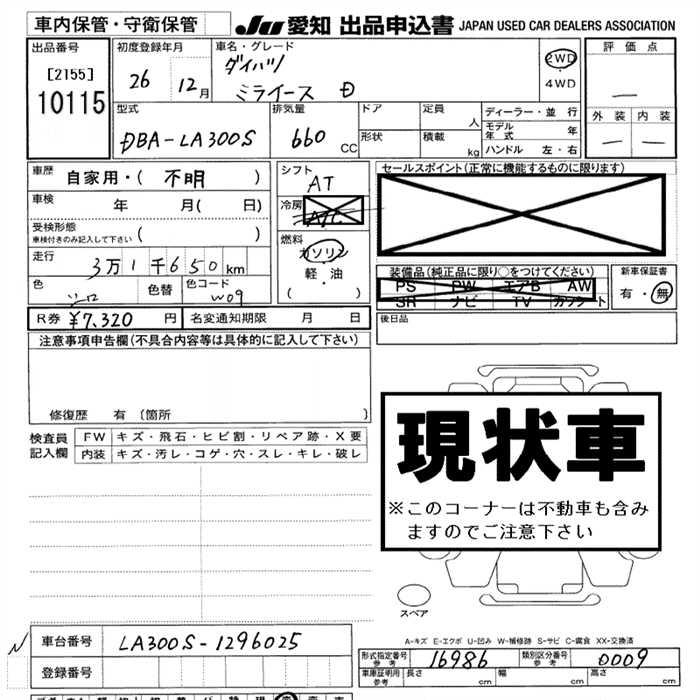 車内保管・守衛保管
JU 愛知 出品申込書 JAPAN USED CAR DEALERS ASSOCIATION
出品番号
[2155]
10115
初度登録年月
26 12月
車名・グレード
ダイハツ
ミライース D
2WD
・
4WD
評価点
—
外装 内装
— —
型式
DBA-LA300S
排気量
660 CC
ドア
形状
定員 人
積載 kg
ディーラー・並行
モデル年式 年
ハンドル 左・右
車歴
自家用・( 不明 )
車検 年 月( 日)
受検形態
車検付きのみ記入して下さい ( )
走行
3万1千650km
色 色替 色コード
W09
シフト
AT
冷房
A/C
燃料
ガソリン
軽・油
( )
セールスポイント(正常に機能するものに限ります)
装備品(純正品に限り○をつけてください)
PS PW エアB AW
SR ナビ TV カセット
新車保証書
有・無
R券 ¥7,320 円
名変通知期限 月 日
後日品
注意事項申告欄(不具合内容等は具体的に記入して下さい)
修復歴 有 (箇所 )
検査員
記入欄
FW キズ・飛石・ヒビ割・リペア跡・X要
内装 キズ・汚レ・コゲ・穴・スレ・キレ・破レ
現状車
※このコーナーは不動車も含み
ますのでご注意下さい
スペア
A-キズ E-エクボ U-凹み W-補修跡 S-サビ C-腐食 XX-交換済
車台番号 LA300S-1296025
登録番号
形式指定番号 参考 16986
類別区分番号 参考 0009
車庫証明用 参考 長さ cm 幅 cm 高さ cm